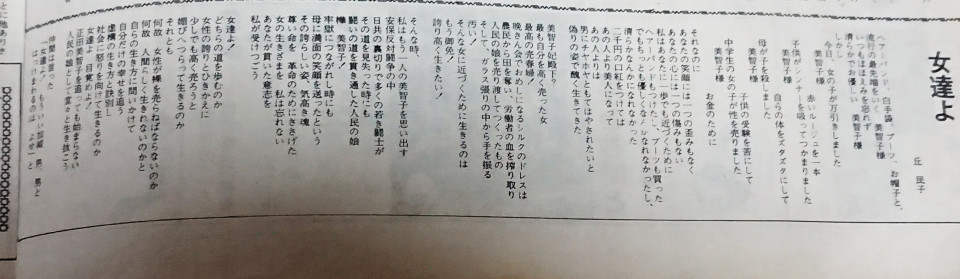 女達よ
丘 民子
ヘアーバンド、白手袋、ブーツ、お帽子と、
流行の最先端をいく 美智子様
いつもほほえみを忘れず
清らかでお優しい 美智子様
しかし
今日、女の子が万引きしました
赤いルージュを一本
子供がシンナーを吸ってつかまりました
自らの体をズタズタにして
母が子を殺しました
子供の受験を苦にして
中学生の女の子が性を売りました
お金のために
美智子様
それなのに
あなたの笑顔には一つの歪みもなく
あなたの心には一つの傷みもない
私はあなたに一歩でも近づくために
ヘアーバンドもつけたし、ブーツも買った
でもちっとも優しくなれなかったし、
清らかなんかになれなかった
二千円の口紅をつけては
あの人より美人になって
あの人よりは
男にチヤホヤともてはやされたいと
偽りの姿で醜く生きてきた
美智子妃殿下?
最も自分を高く売った女
最高の売春婦
晩さん会でおめしになるシルクのドレスは
農民から田を奪い、労働者の血を搾り取り
人民の娘を売り渡してつくったもの
そして、ガラス張りの中から手を振る
汚い
もう死ね!
そんな女に近づくために生きるのは
誇り高く生きたい!
そんな時、
私はもう一人の美智子を思い出す
安保反対闘争の中
日共の裏切りで多くの若き闘士が
その道を見失った時にも
闘いの道を貫き通した人民の娘
樺 美智子!
牢獄につながれし時にも
母に満面の笑顔を送ったという
その誇らしき姿、気高き魂
尊い命を革命のためにささげた
女の生きざまを 私は忘れない
あなたが貫いた意志を
私が受けつごう
女達よ!
どちらの道を歩むのか
女性の誇りとひきかえに
少しでも高く売ろうと
媚びへつらって生きるのか
それとも
何故 女性が裸を売らねばならないのか
何故 人間らしく生きれないのかと
自らの生き方に問いかけて
自分だけの幸せを追う
虚構の生き方と訣別し
社会に怒りを向けて生きるのか
女達よ 目覚めよ!
正田美智子を追っても始まらない
人民の娘として堂々と生き抜こう
仲間は言った